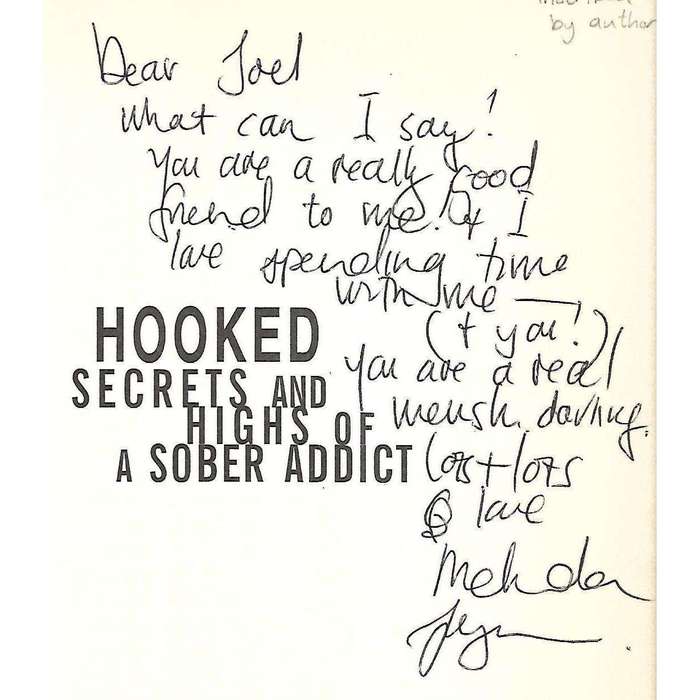 by author
Dear Joel
What can I say!
You are a really good
friend to me! & I
love spending time
with me —
(+ you!)
HOOKED
SECRETS AND
HIGHS OF
A SOBER ADDICT
you are a real
mensh darling.
Lots + lots
love